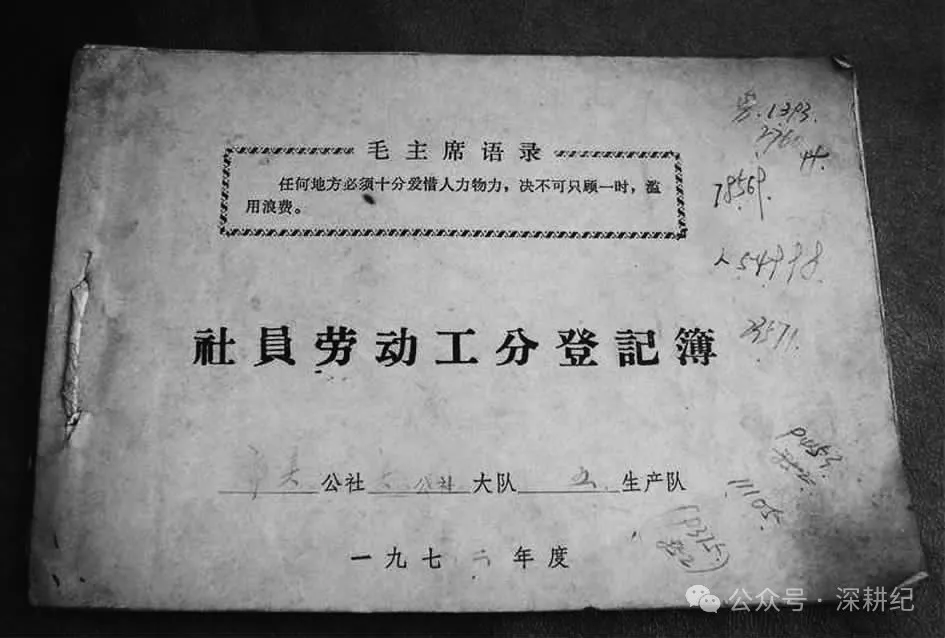 毛主席语录
任何地方必须十分爱惜人力物力，决不可只顾一时，滥
用浪费。
1393.
2760
78569.
54998
23571.
社員劳动工分登記簿
公社 公社 大队 五 生产队
11105.
一九七二年度
公众号·深耕纪